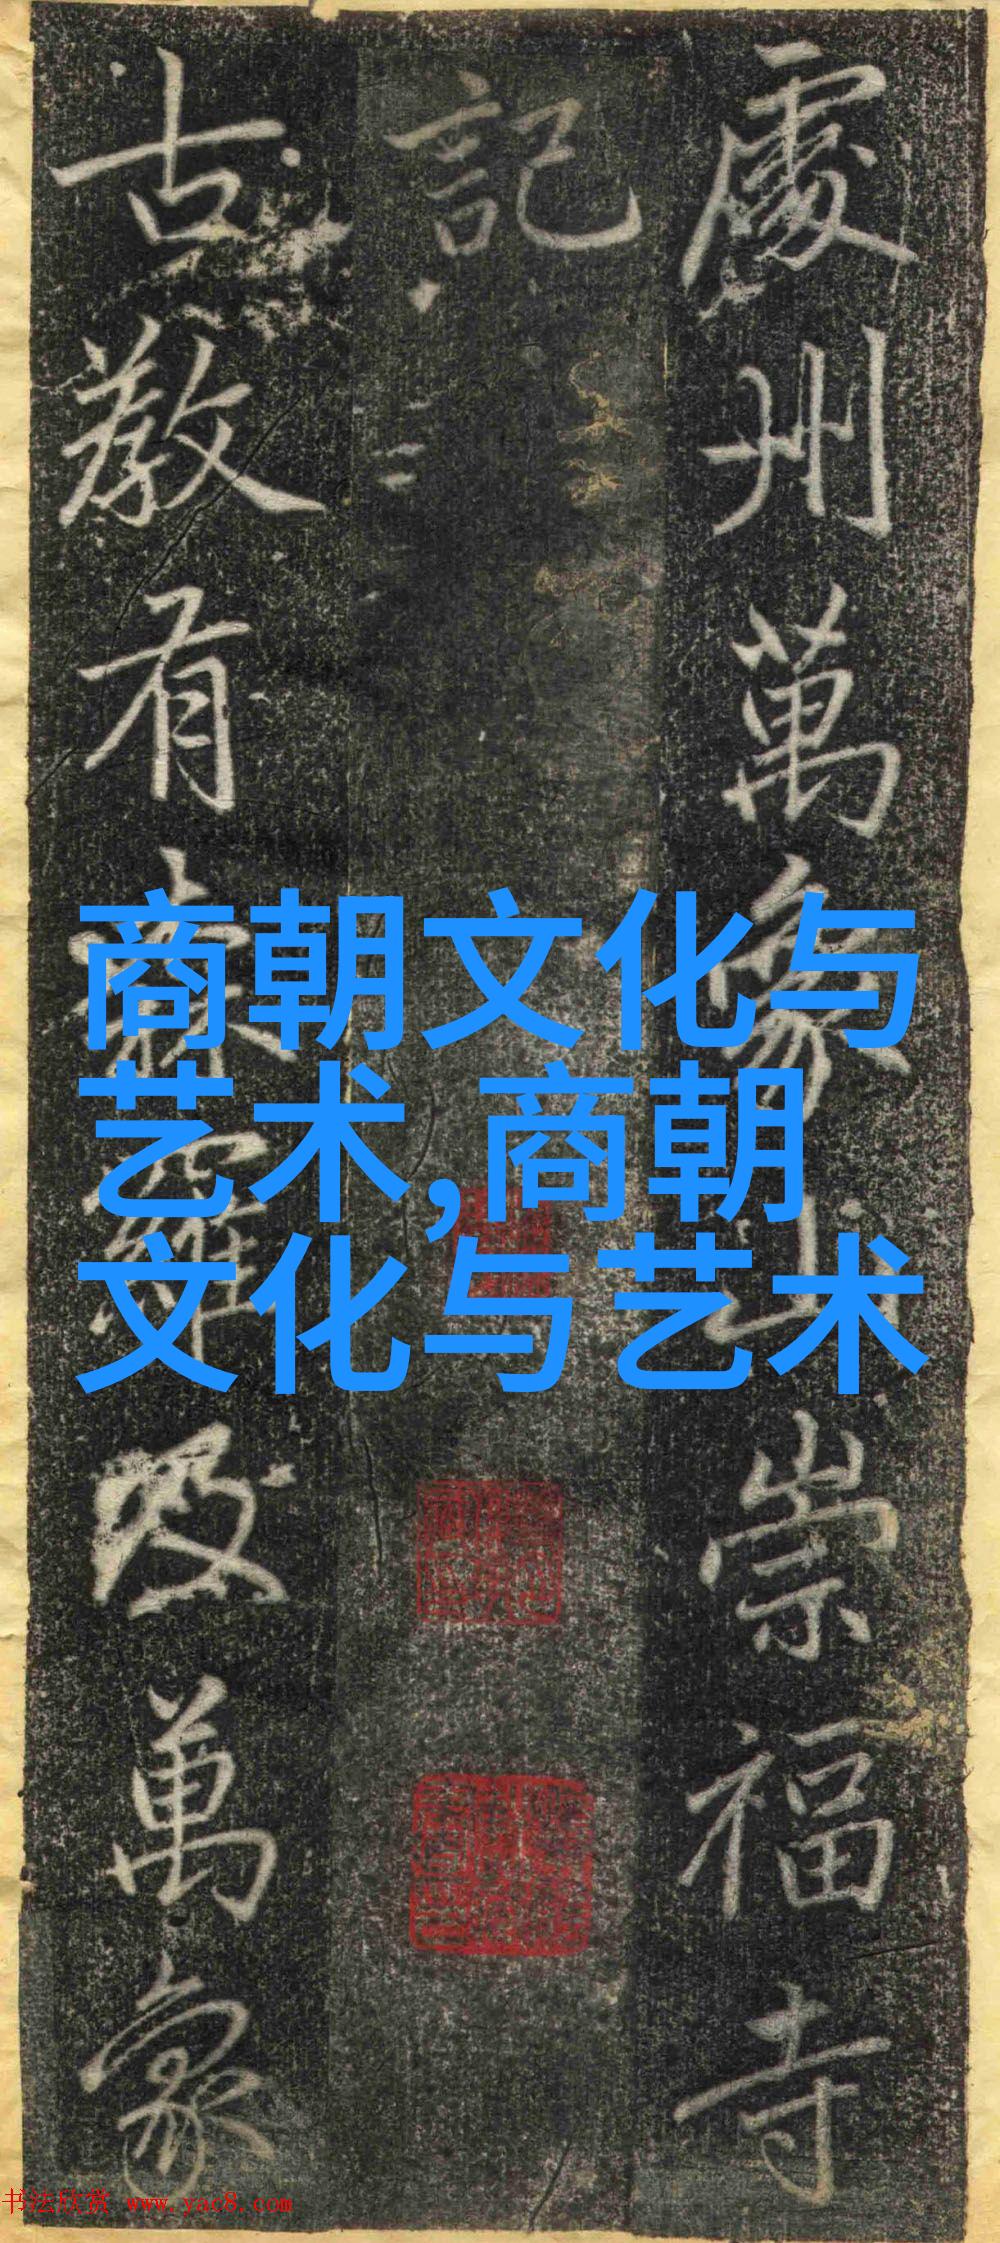 處州萬象山崇福寺
記
古教有森羅及萬象
商朝文化与
艺术,商朝
文化与艺术
书法欣赏 www.yac8.com